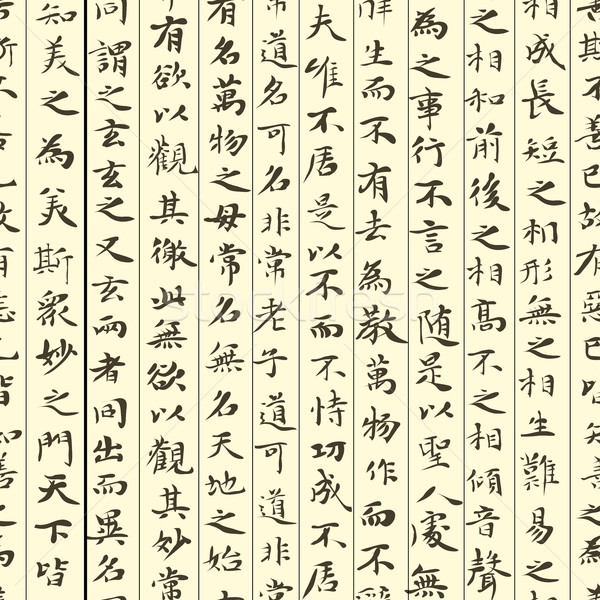 善斯不善已故有惡已皆知善之為
相成長短之相形無之相生難易之
之相和前後之相高不之相傾音聲
為之事行不言之随是以聖人處無
生而不有去為教萬物作而不辭
夫唯不居是以不而不恃功成不居
常道名可名非常老子道可道非常
有名萬物之母常名無名天地之始
有欲以觀其徼此無欲以觀其妙常
同謂之玄玄之又玄兩者同出而異名同
知美之為美斯眾妙之門天下皆